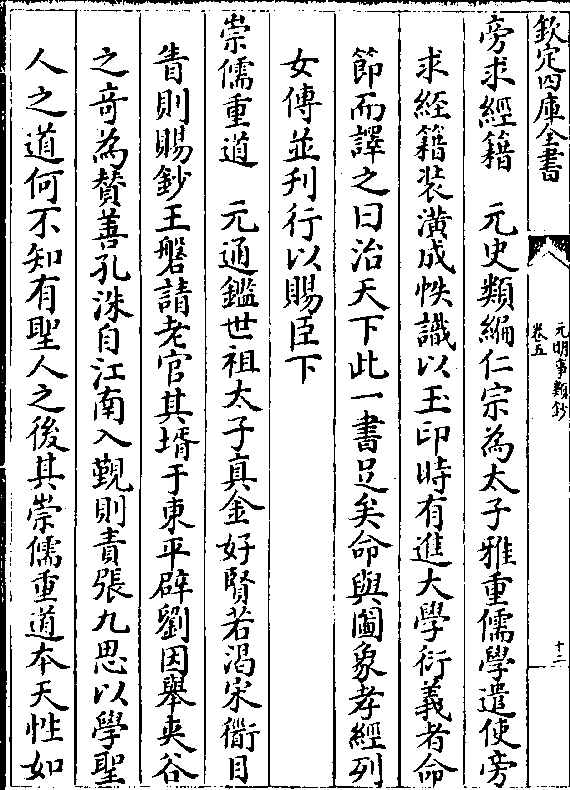 欽定四庫全書
元明事類鈔
卷五
十二
旁求經籍　元史類編仁宗為太子雅重儒學遣使旁
求經籍装潢成帙識以玉印時有進大學衍義者命
節而譯之曰治天下此一書足矣命與圖象孝經列
女傳並刋行以賜臣下
崇儒重道　元通鑑世祖太子真金好賢若渴宋衜目
眚則賜鈔王磐請老官其壻于東平辟劉因舉夾谷
之奇為賛善孔洙自江南入覲則責張九思以學聖
人之道何不知有聖人之後其崇儒重道本天性如